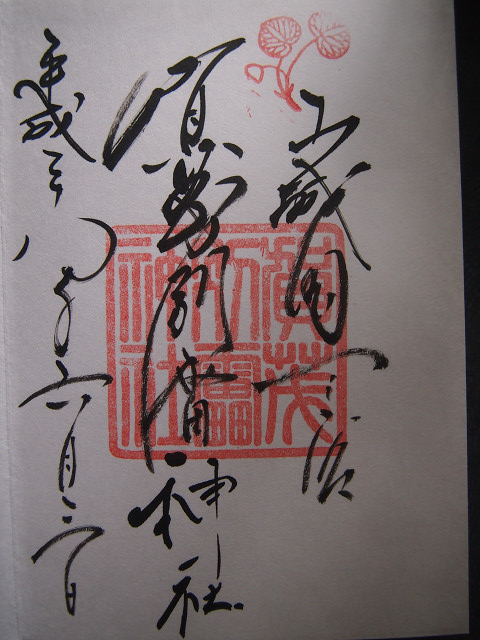 山城国一之宮
賀茂別雷神社
平成二十八年六月日
賀茂
別雷
神社